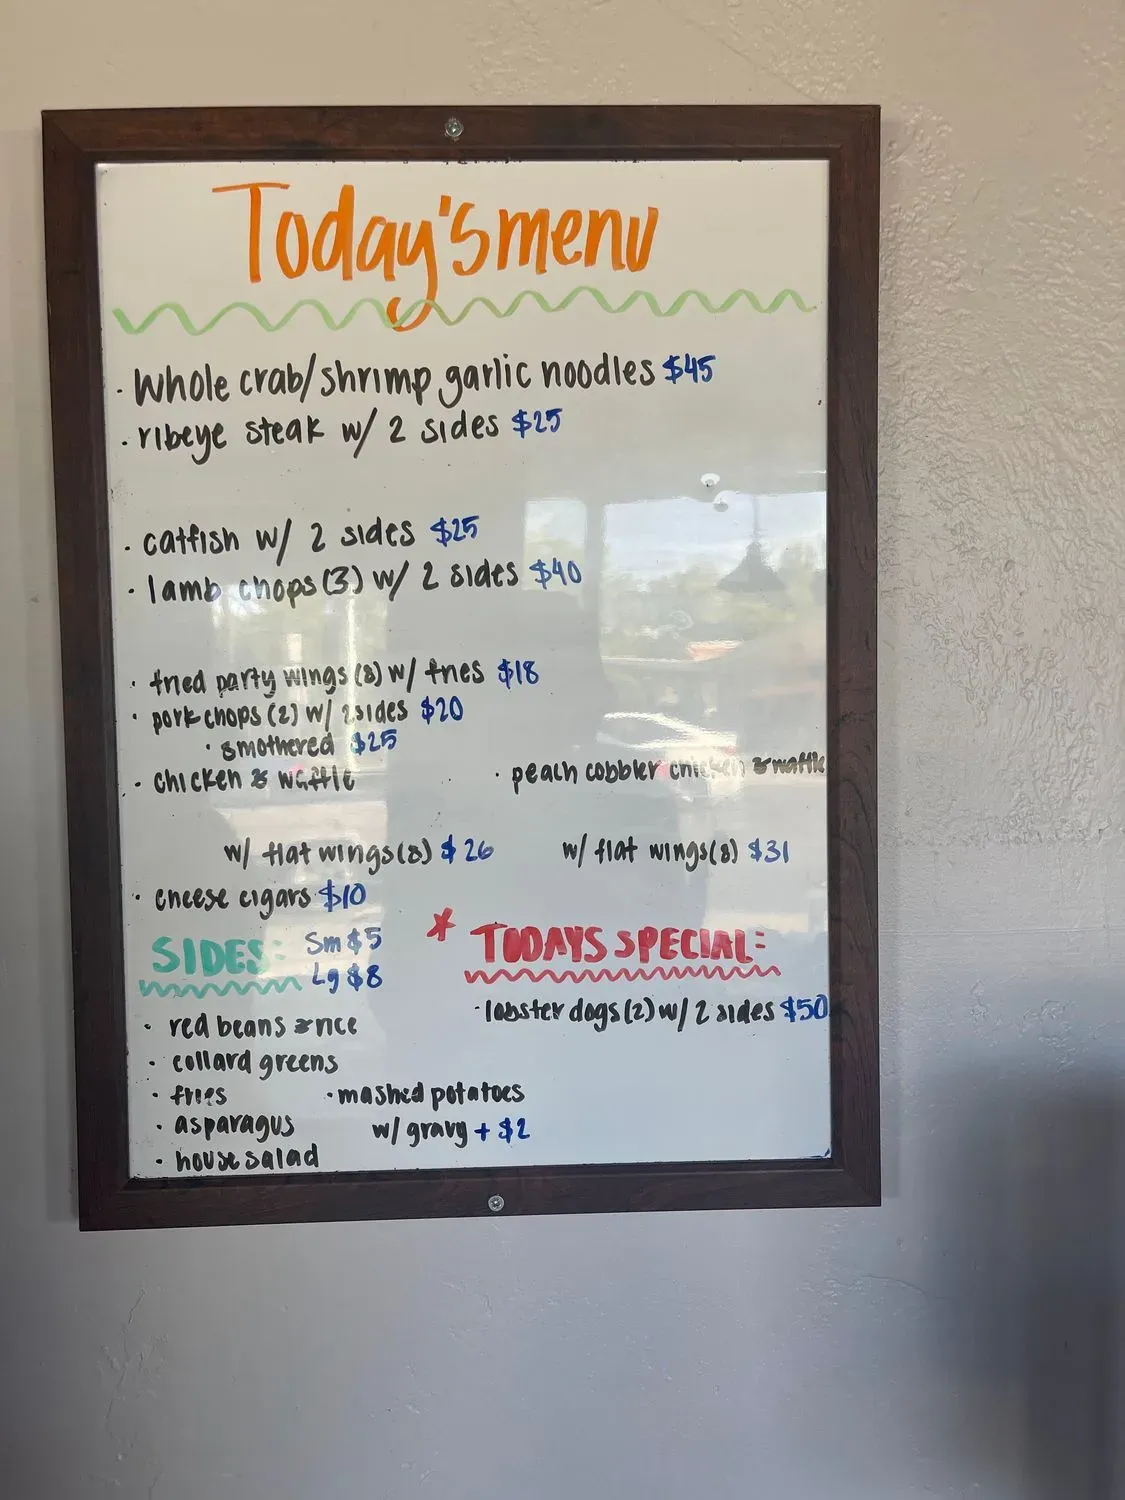 Today's menu
· Whole crab/shrimp garlic noodles $45
· ribeye steak w/ 2 sides $25
· catfish w/ 2 sides $25
· lamb chops (3) w/ 2 sides $40
· fried party wings (8) w/ fries $18
· pork chops (2) w/ 2 sides $20
· smothered $25
· chicken & waffle
· peach cobbler chicken & waffle
w/ flat wings (8) $26
w/ flat wings (8) $31
· cheese cigars $10
SIDES: Sm $5
Lg $8
· red beans & rice
· collard greens
· fries
· asparagus
· house salad
· mashed potatoes
w/ gravy + $2
* TODAYS SPECIAL:
· lobster dogs (2) w/ 2 sides $50